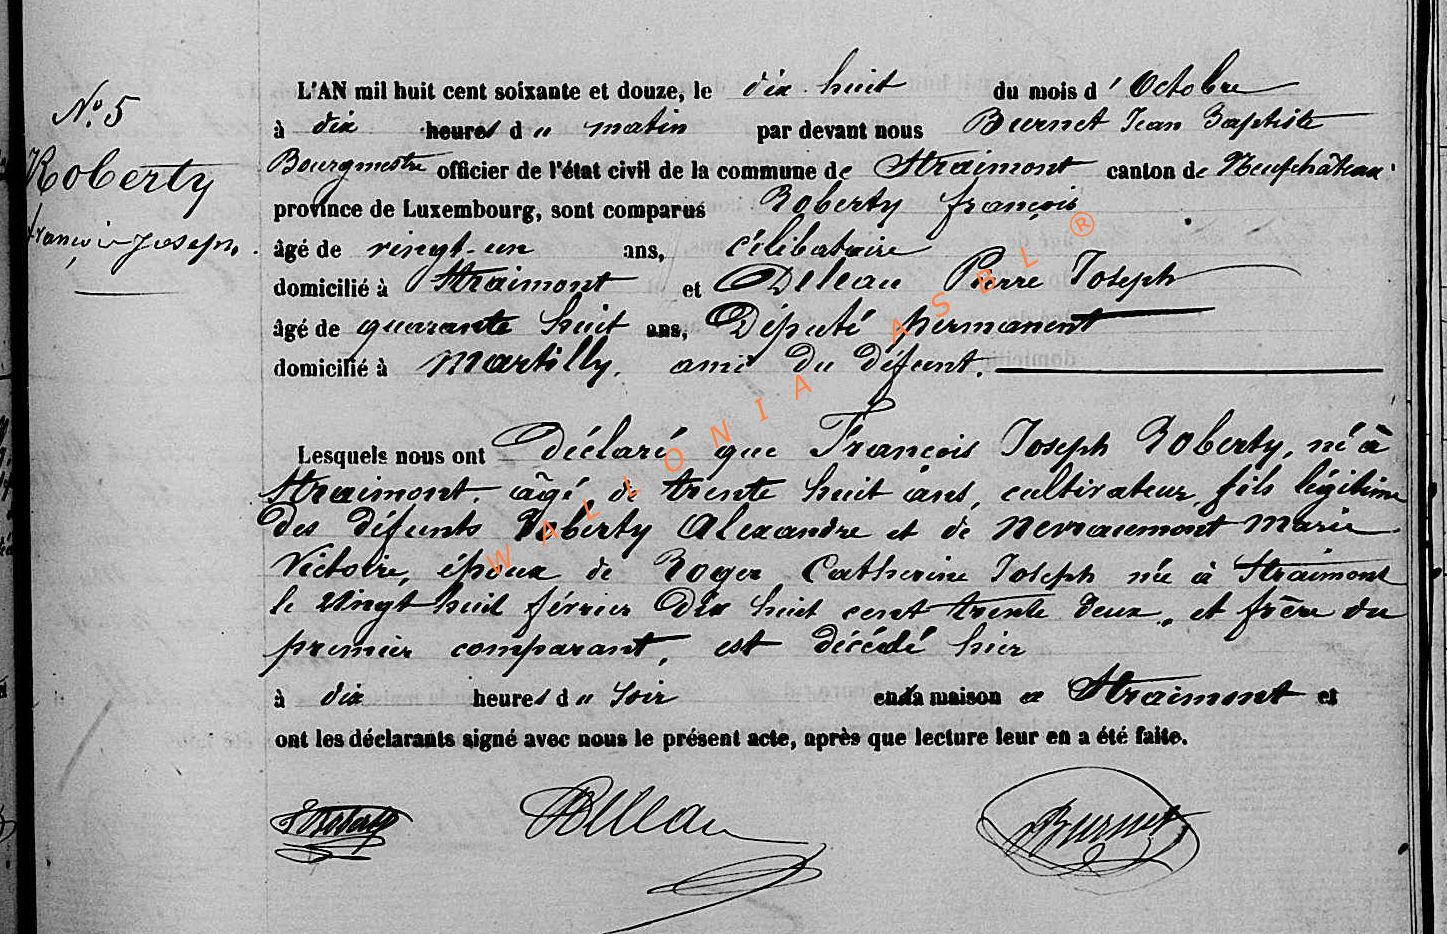 N° 5
Roberty
François Joseph.
L'AN mil huit cent soixante et douze, le dix huit du mois d'Octobre
à dix heures du matin par devant nous Burnet Jean Baptiste
Bourgmestre officier de l'état civil de la commune de Straimont canton de Neufchâteau
province de Luxembourg, sont comparus Roberty françois
âgé de vingt-un ans, célibataire
domicilié à Straimont et Delleau Pierre Joseph
âgé de quarante huit ans, Député permanent
domicilié à Martilly, ami du défunt.
Lesquels nous ont Déclaré que François Joseph Roberty, né à
Straimont, âgé de trente huit ans, cultivateur, fils légitime
des défunts Roberty Alexandre et de Marie
Victoire, époux de Roger Catherine Joseph née à Straimont
le vingt huit février Dix huit cent trente deux, et frère du
premier comparant, est décédé hier
à dix heures du soir en la maison a Straimont et
ont les déclarants signé avec nous le présent acte, après que lecture leur en a été faite.
Roberty Delleau Burnet
WALLONIA ASBL ®